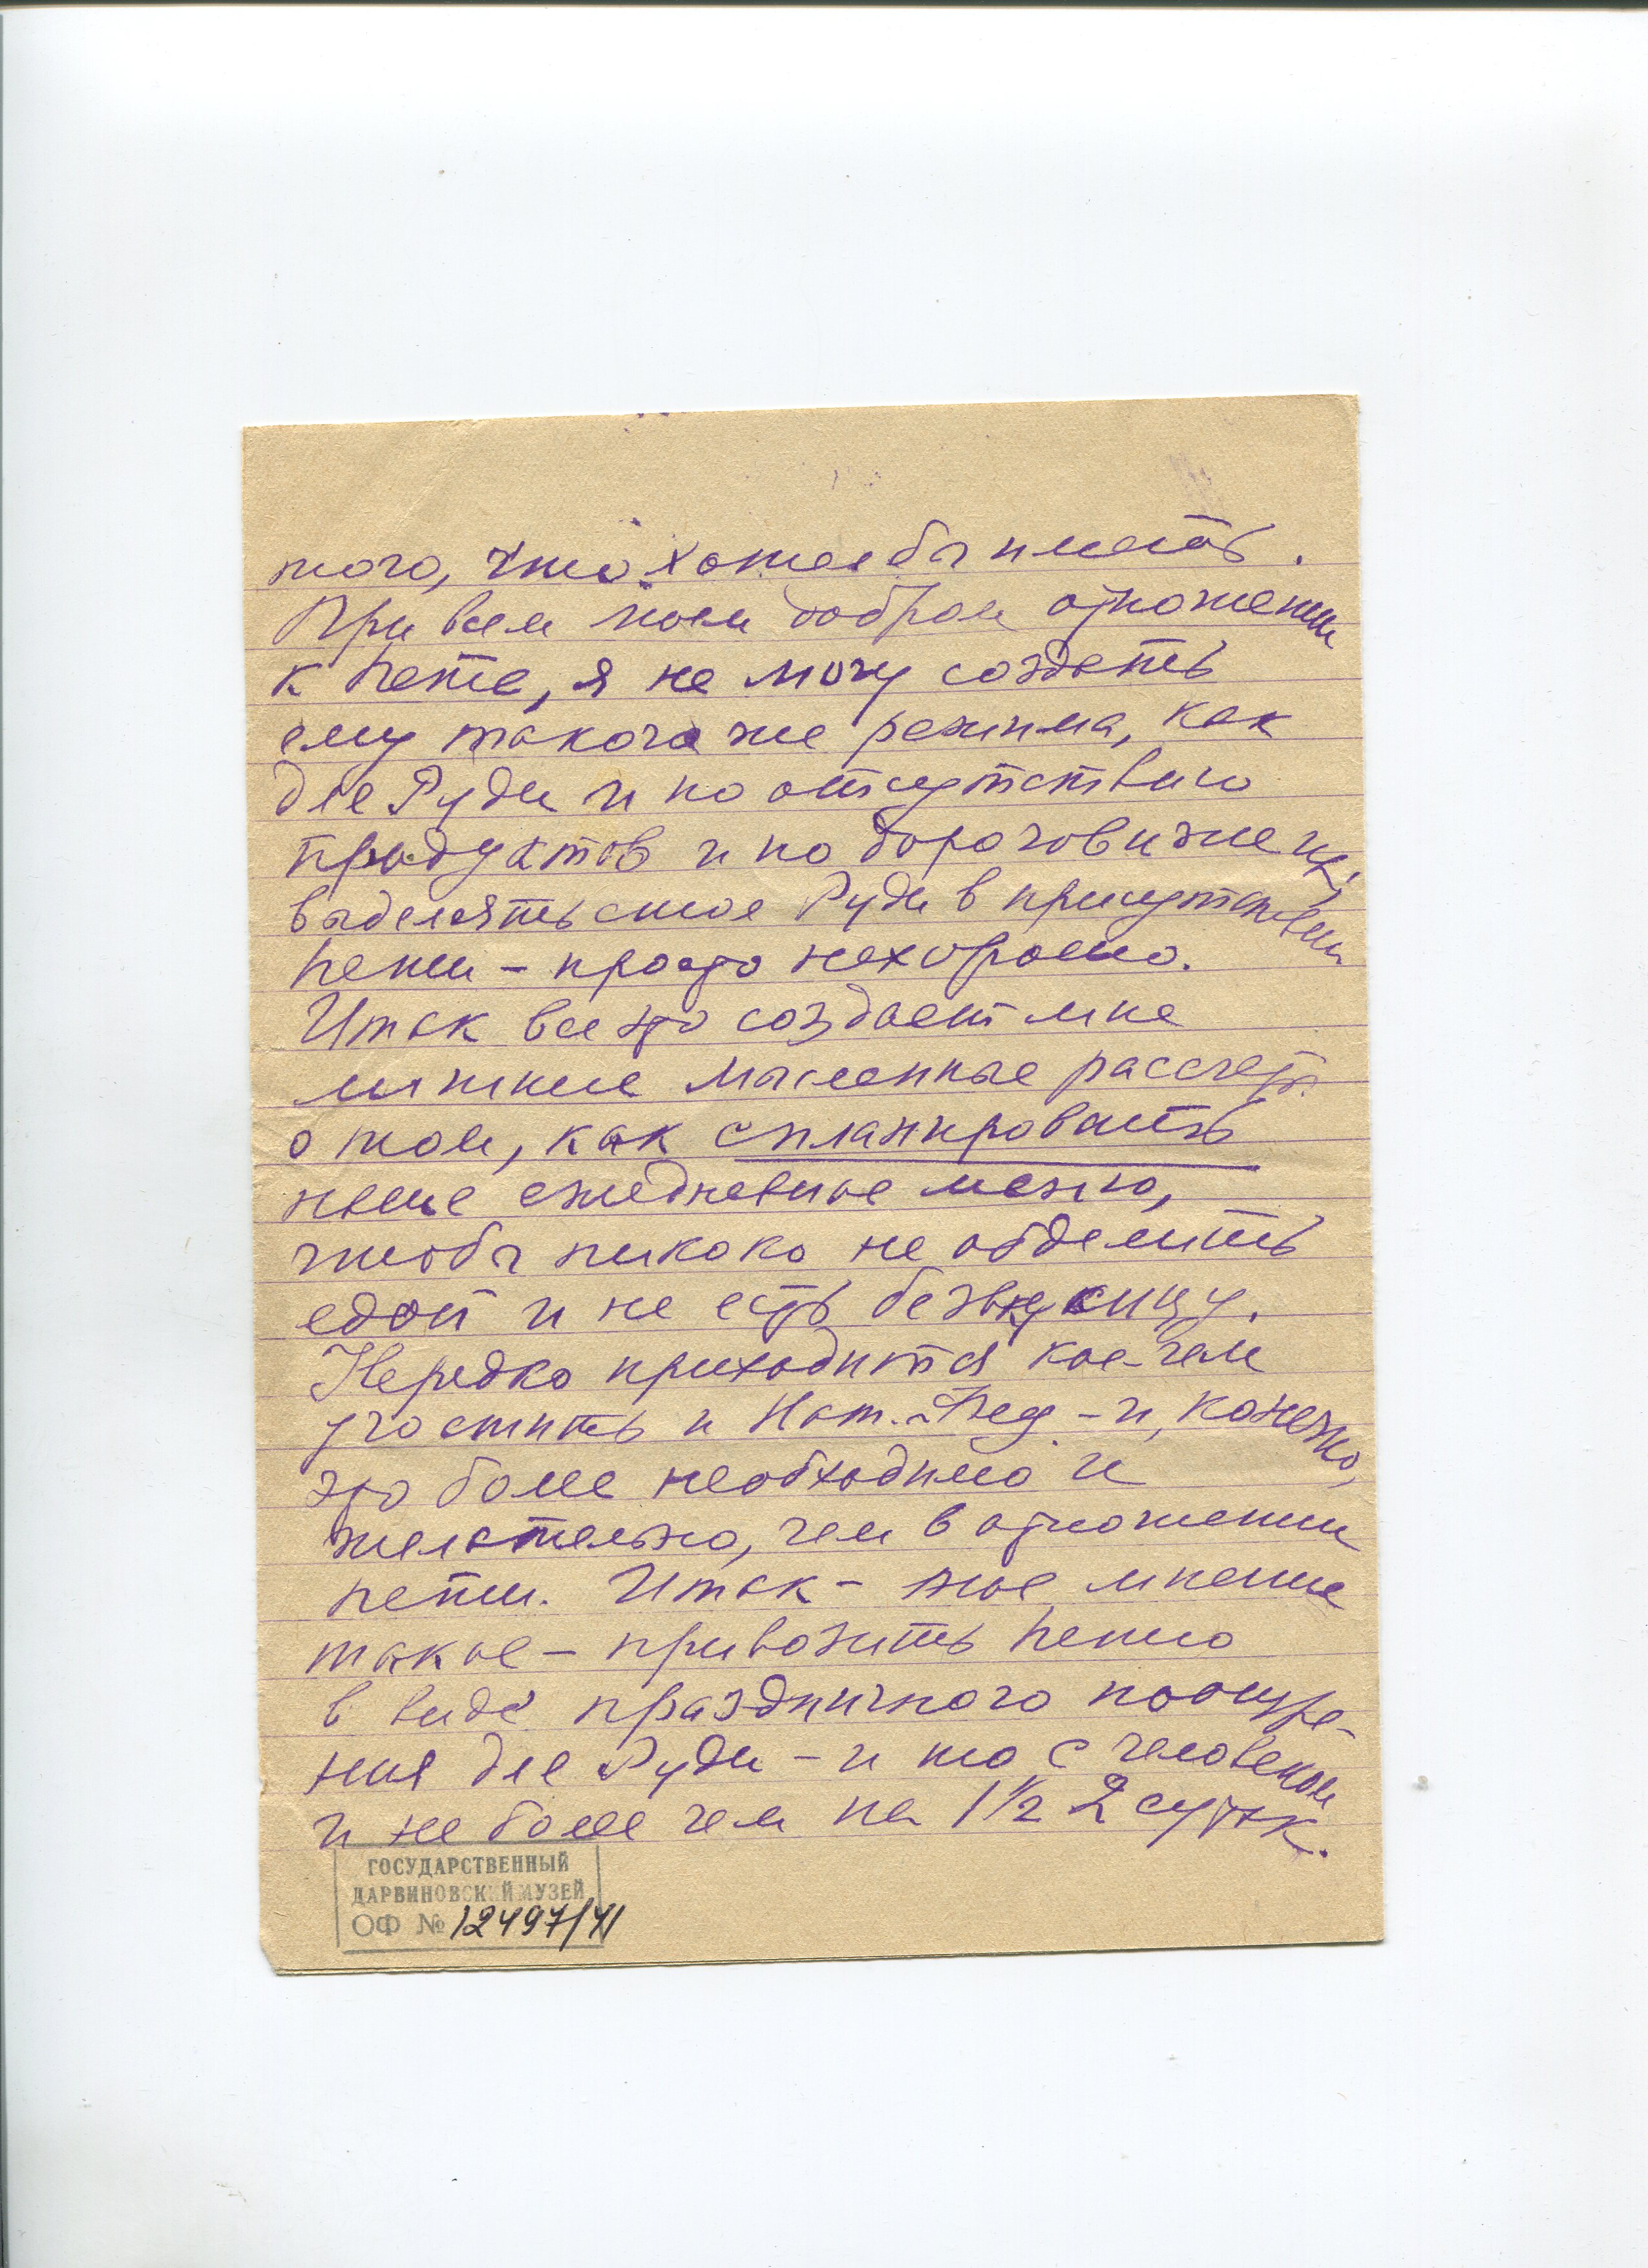 того, что хотел бы иметь.
При всем моем добром отношении
к Пете, я не могу создать
ему такого же режима, как
для Руди и по отсутствию
продуктов и по дороговизне их,
выделять стол Руди в присутствии
Пети – просто нехорошо.
Итак все это создает мне
лишние мысленные рассчеты
о том, как спланировать
наше ежедневное меню,
чтобы никого не обделить
едой и не есть безвкусицу.
Нередко приходится кое-чем
угостить и Нат. Фед – и, конечно,
это более необходимо и
желательно, чем в отношении
Пети. Итак – мое мнение
такое – привозить Петю
в виде праздничного поощре-
ния для Руди – и то с человеком
и не более чем на 1 1/2 2 суток.
ГОСУДАРСТВЕННЫЙ
ДАРВИНОВСКИЙ МУЗЕЙ
ОФ № 12497/41